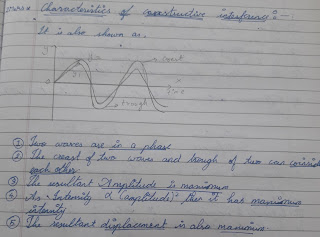 Characteristics of constructive interference :-
It is also shown as.
crest
trough
① Two waves are in a phase
② The creast of two waves and trough of two can coinside
each other
③ The resultant Amplitude is maximum
④ As Intensity ∝ (amplitude)² then it has maximum
intensity
⑤ The resultant displacement is also maximum